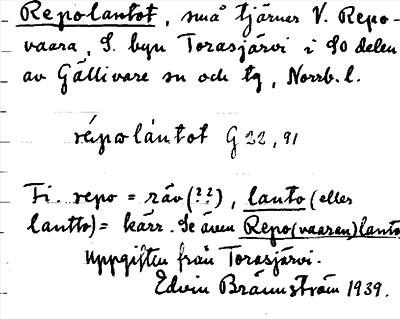 Repolantot, små tjärner V. Repo-
vaara, S. byn Torasjärvi i SO delen
av Gällivare sn och tg, Norrb. l.
répolántot G 22, 91
Fi. repo = räv (??), lanto (eller
lantto) = kärr. Se även Repo(vaaran)lanto
Uppgiften från Torasjärvi.
Edvin Brännström 1939.